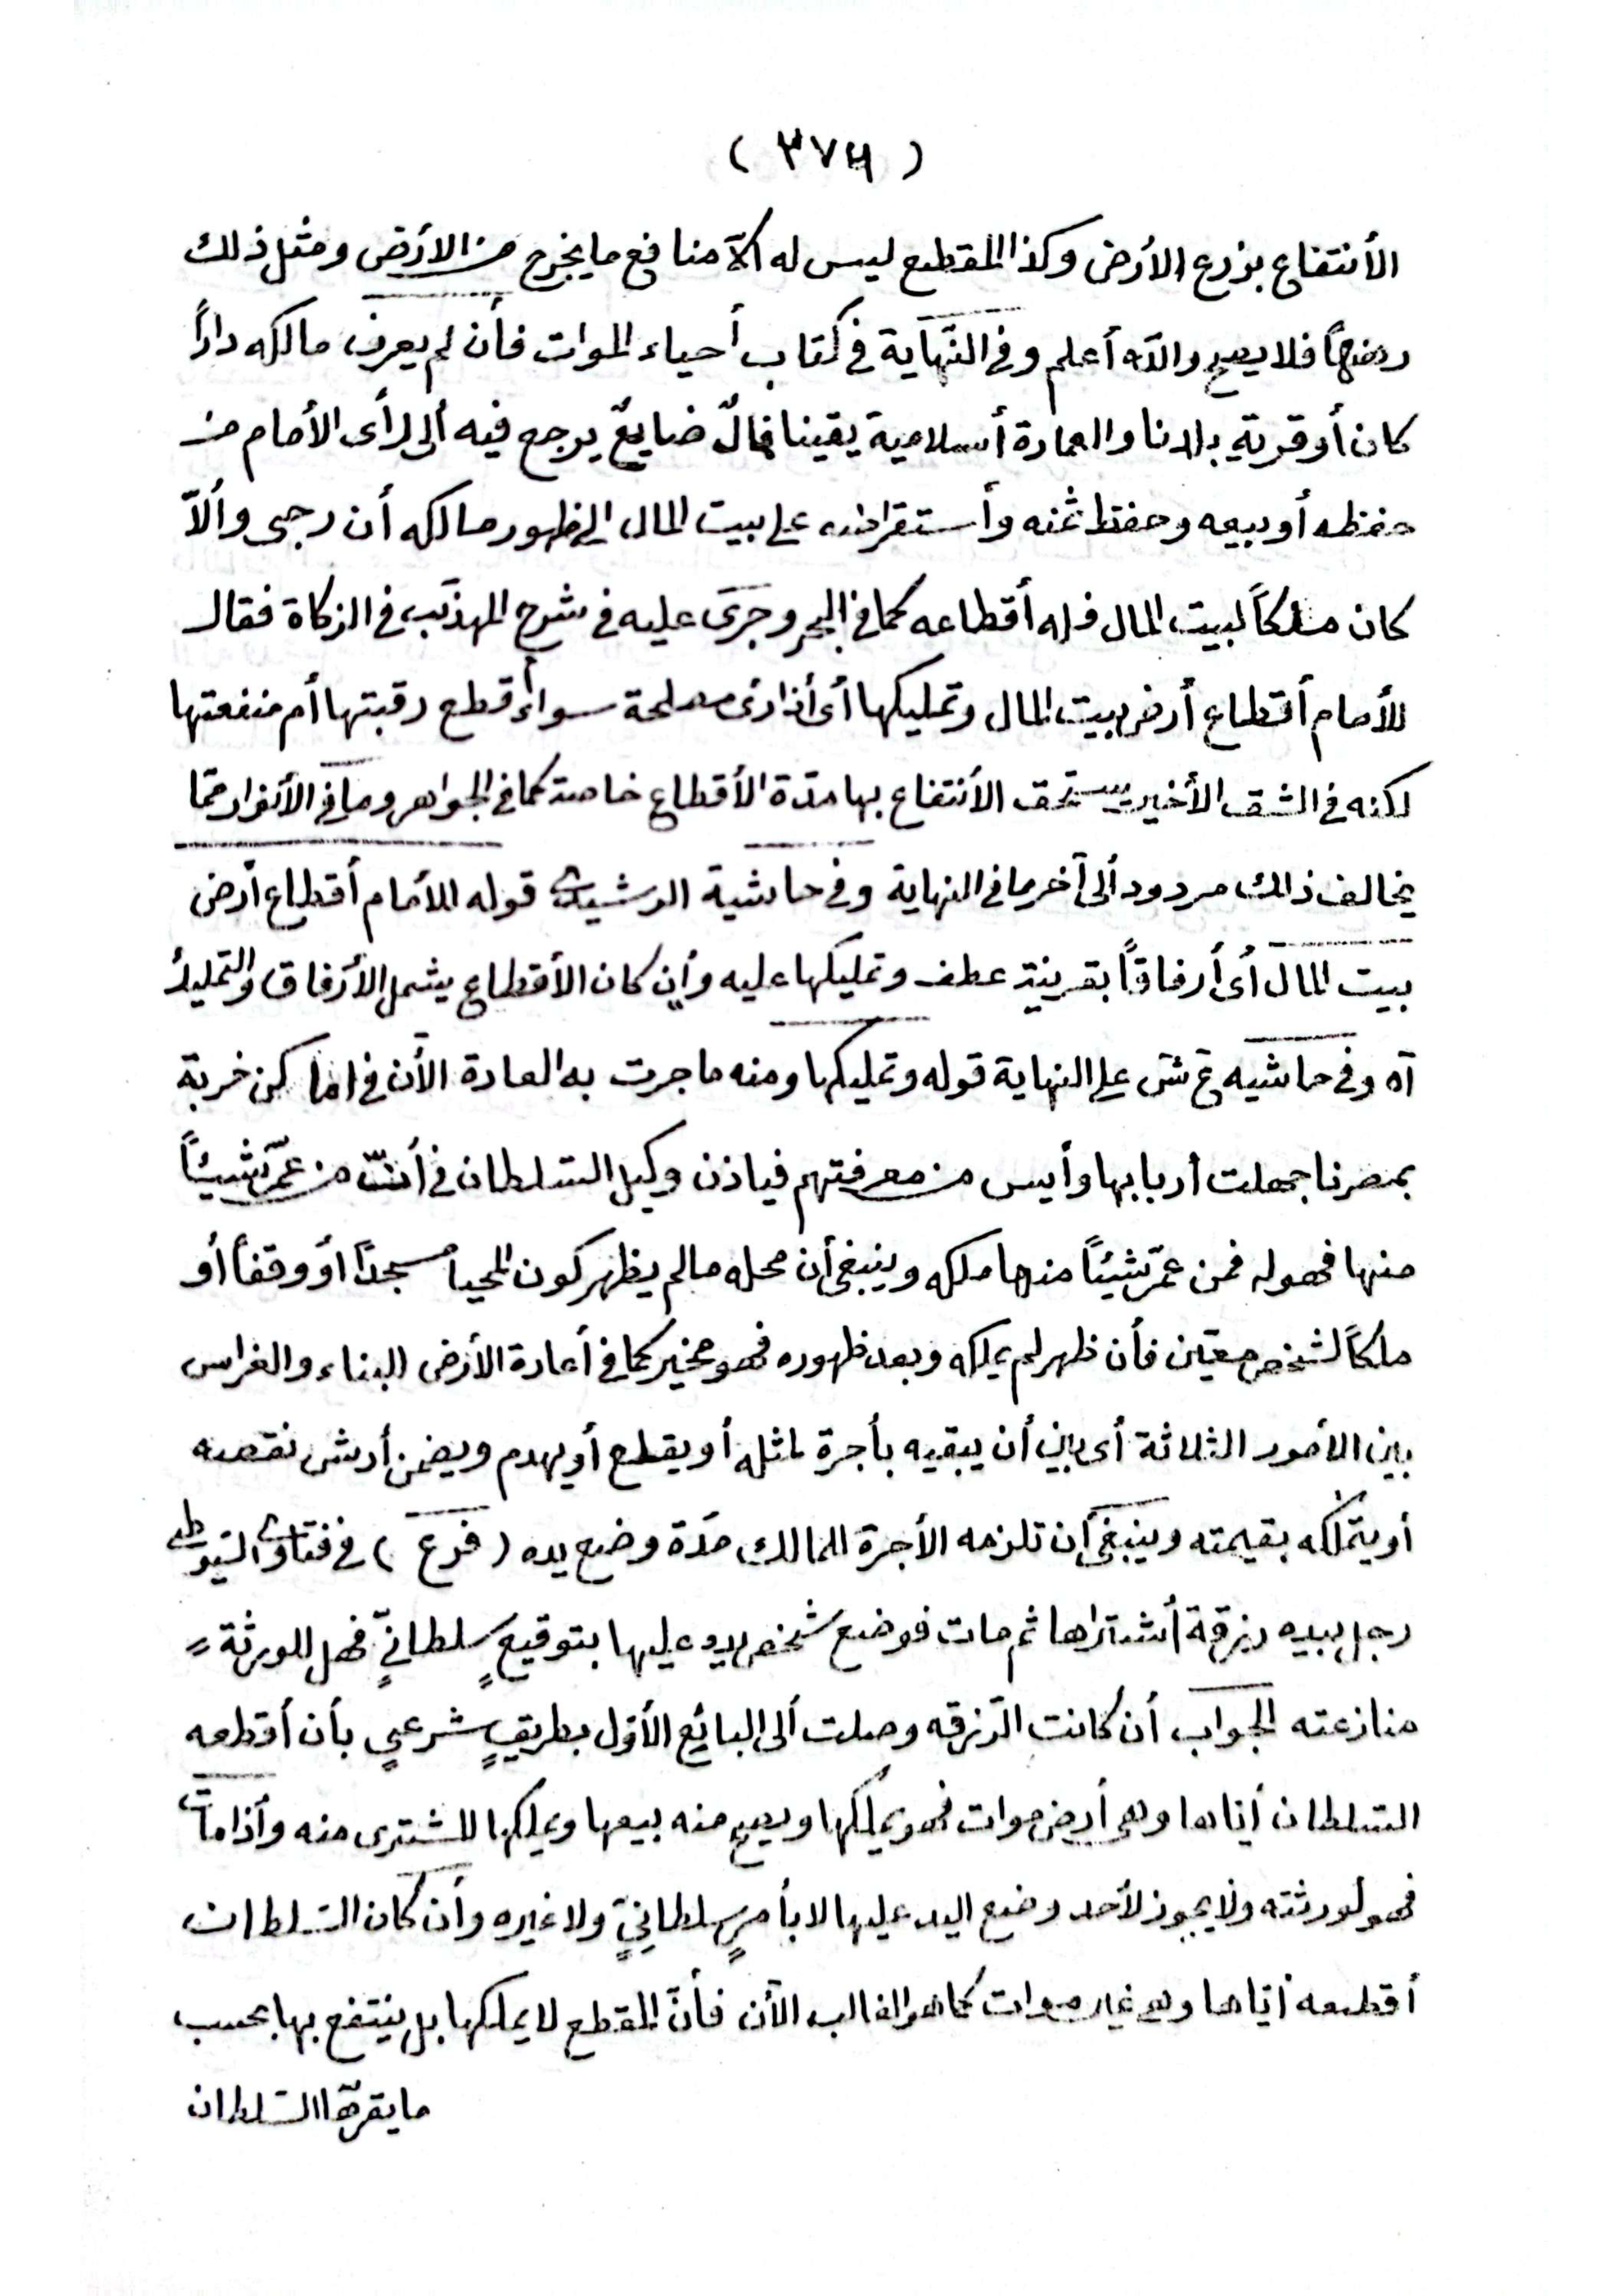 ( ٣٧٦ )
الأنتفاع بزرع الأرض وكذا المقطع ليس له الّا منافع ما يخرج من الارض ومثل ذلك
رهنهاً فلا يصح والله أعلم وفى النّهاية فى كتاب أحياء الموات فأن لم يعرف مالكه داراً
كان أو قرية بدارنا والعمارة أسلامية يقينا فمالٌ ضايعٌ يرجع فيه ألى رأى الأمام من
حفظه أو بيعه وحفظ ثمنه وأستقراضه على بيت المال الى ظهور مالكه أن رجى وألاّ
كان ملكاً لبيت المال فله أقطاعه كما فى البحر وجرَى عليه فى شرح المهذّب فى الزكاة فقال
للأمام أقطاع أرض بيت المال وتمليكها أى أذا رئ مصلحة سواء أقطع رقبتها أم منفعتها
لكنه فى الشق الأخير يستحق الأنتفاع بها مدّة الأقطاع خاصة كما فى الجواهر وما فى الأنوار ممّا
يخالف ذالك مردود ألى آخر ما فى النهاية وفى حاشية الرشيدى قوله للأمام أقطاع أرض
بيت المال أى أرفاقاً بقرينة عطف وتمليكها عليه وأن كان الأقطاع يشمل الأرفاق والتمليك
آه وفى حاشيه ع ش على النهاية قوله وتمليكها ومنه ما جرت به العادة الأن فى اماكن خربة
بمصرنا جهلت أربابها وأيس من معرفتهم فياذن وكيل السّلطان فى أنّ من عمّر شيئاً
منها فهو له فمن عمّر شيئاً منها ملكه وينبغى أن محله مالم يظهر كون المحيا مسجداً أو وقفاً أو
ملكاً لشخص معيّن فأن ظهر لم يملكه وبعد ظهوره فهو مخير كما فى أعارة الأرض للبناء والغراس
بين الأمور الثلاثة أى بين أن يبقيه بأجرة مثله أو يقلع أو يهدم ويضمن أرش نقصه
أو يتملّكه بقيمته وينبغى أن تلزمه الأجرة للمالك مدّة وضع يده ( فرع ) فى فتاوى السّيوطى
رجل بيده رزقة أشتراها ثم مات فوضع شخص يده عليها بتوقيعٍ سلطانىٍّ فهل للورثة
منازعته الجواب أن كانت الرّزقه وصلت ألى البائع الأوّل بطريقٍ شرعىٍ بأن أقطعه
السّلطان أياها وهى أرض موات فهو يملكها ويصح منه بيعها ويملكها المشترى منه وأذا مات
فهو لورثته ولا يجوز لأحد وضع اليد عليها لا بأمرٍ سلطانىٍّ ولا غيره وأن كان السّلطان
أقطعه أيّاها وهى غير موات كما هو الغالب الأن فأنّ المقطع لا يملكها بل ينتفع بها بحسب
ما يقرّها السّلطان